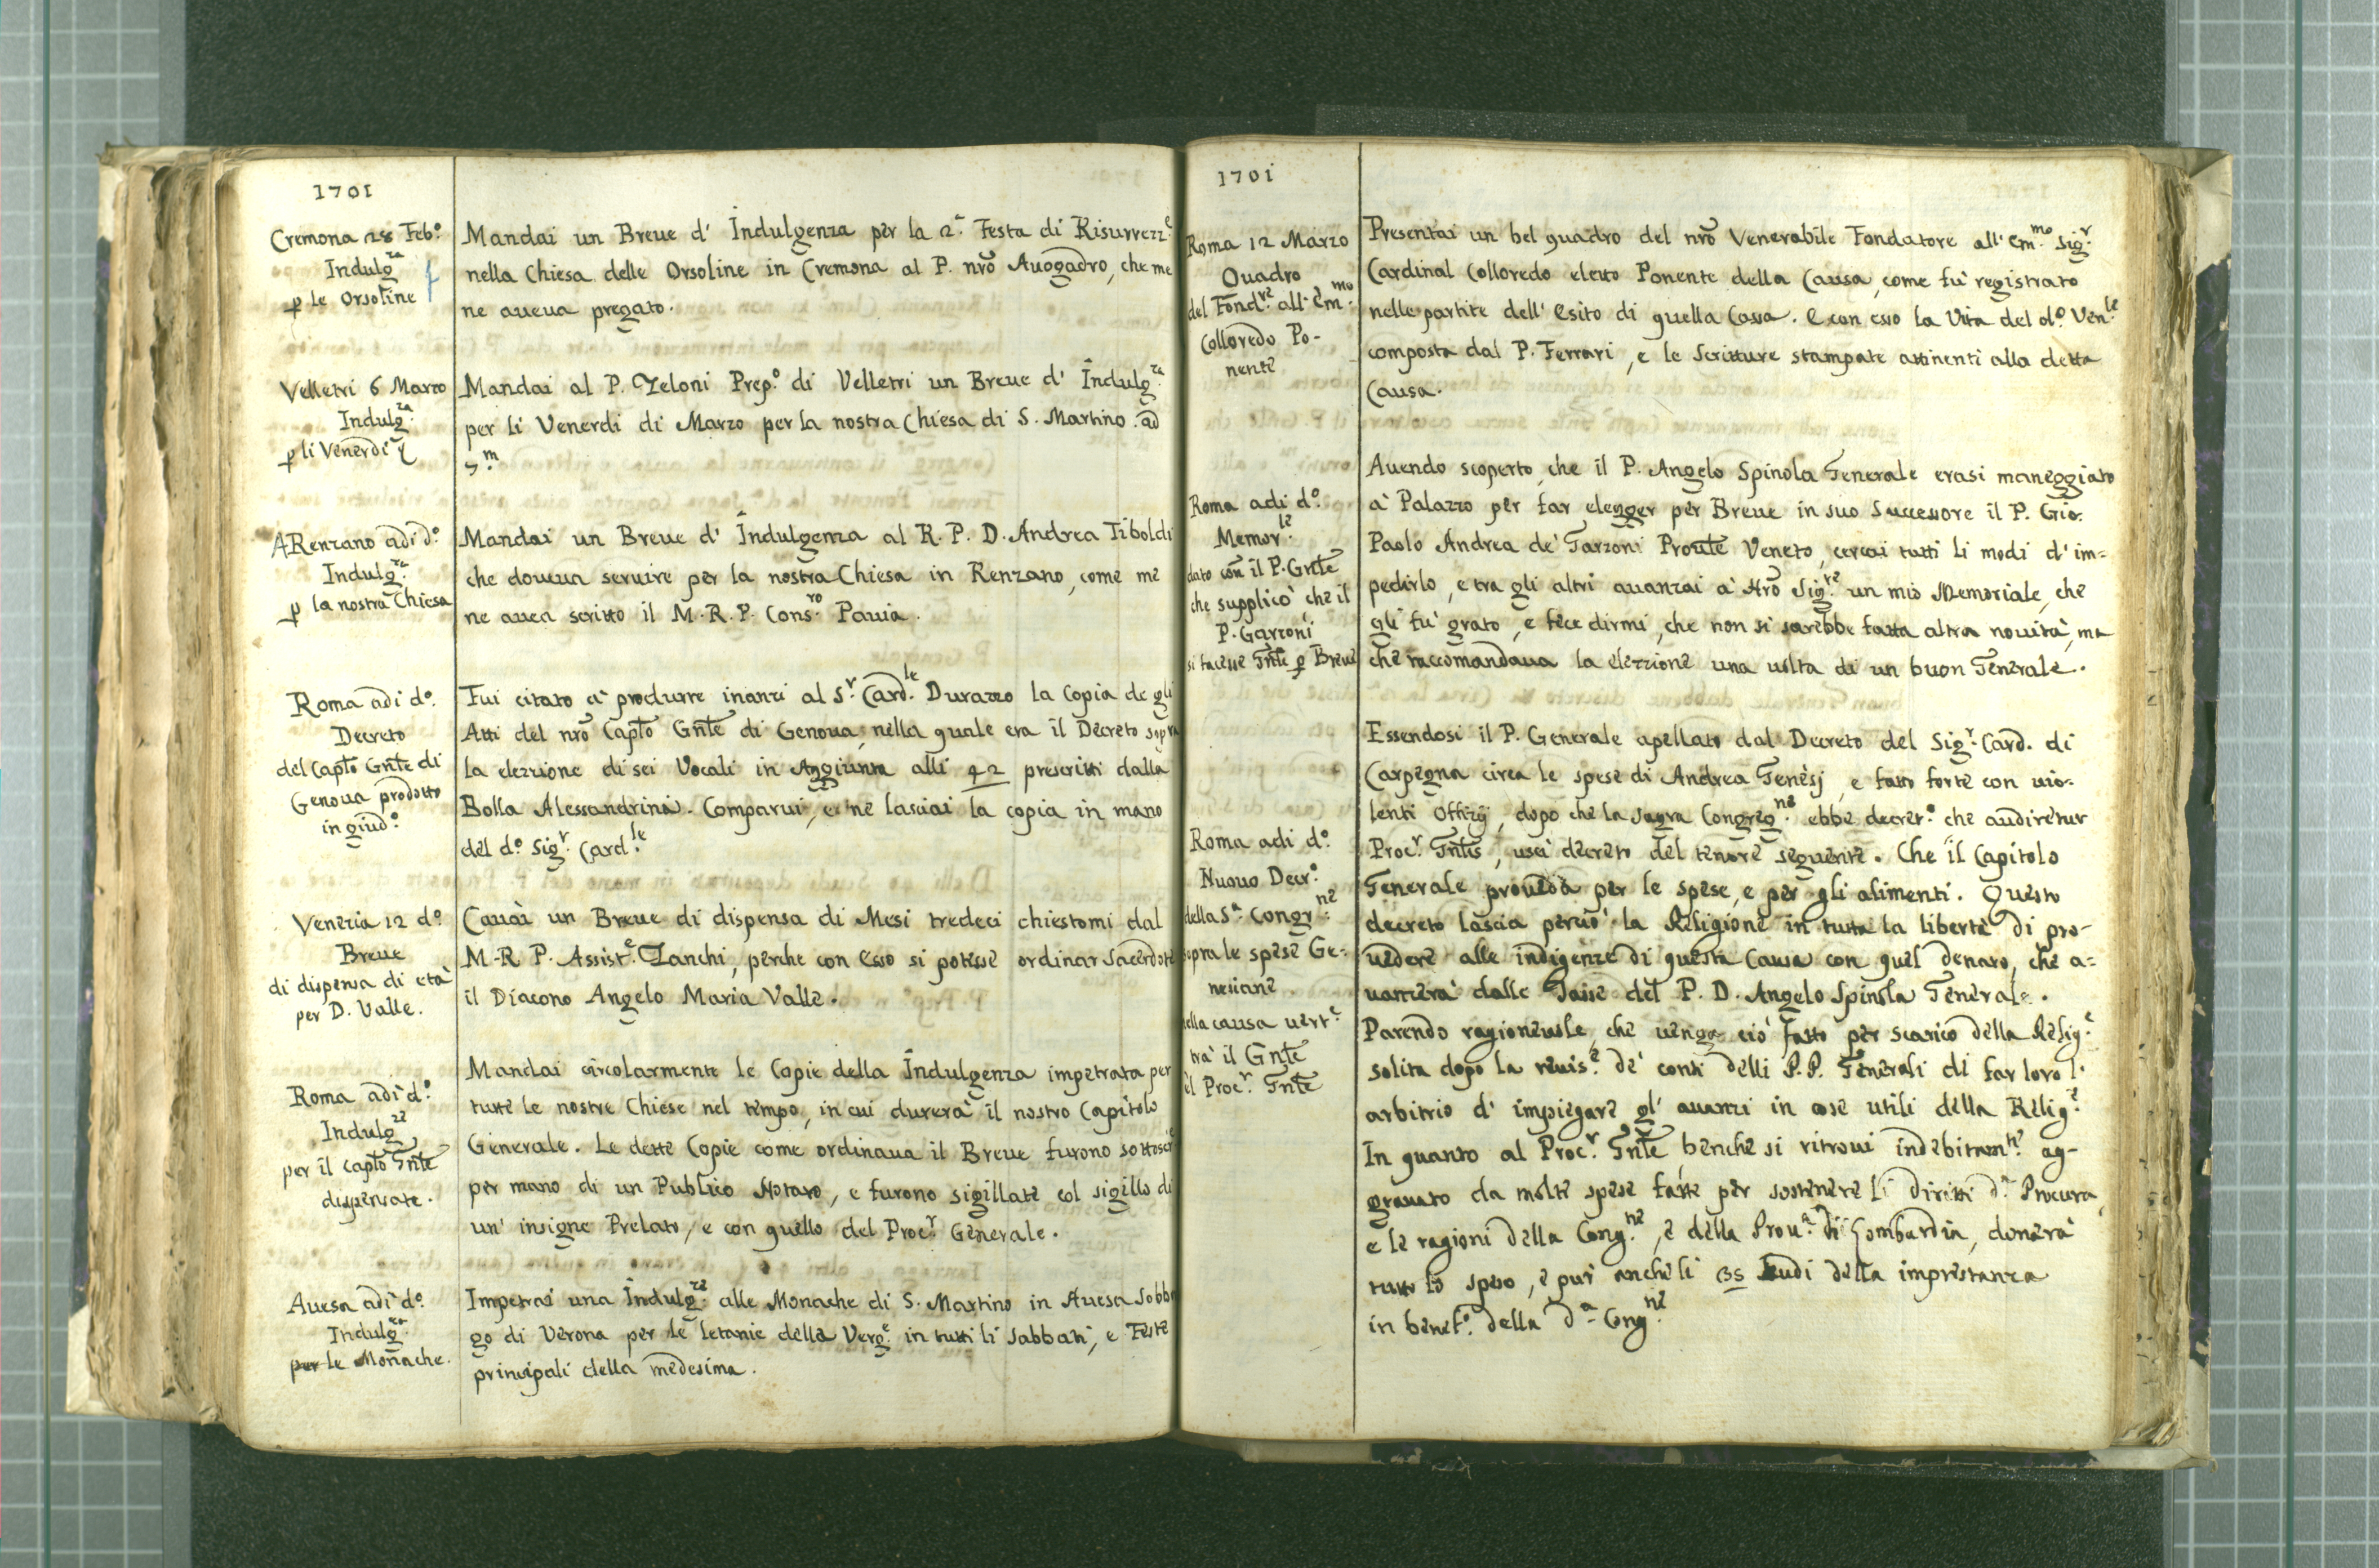 1701
Cremona 28 Feb.º
Indulg.za
p le Orsoline
Mandai un Breue d' Indulgenza per la 2.ª Festa di Risurrezz.e
nella Chiesa delle Orsoline in Cremona al P. nrõ Auogadro, che me
ne aueua pregato.
Velletri 6 Marzo
Indulg.za
p li Venerdi
Mandai al P. Zeloni Prep.º di Velletri un Breue d' Indulg.za
per li Venerdi di Marzo per la nostra Chiesa di S. Martino. ad
7.m
A Renzano adi d.º
Indulg.za
p la nostra Chiesa
Mandai un Breue d' Indulgenza al R. P. D. Andrea Tiboldi
che doueua seruire per la nostra Chiesa in Renzano, come me
ne auea scritto il M. R. P. Cons.ro Pauia.
Roma adi d.º
Decreto
del Capto Gnte di
Genoua prodotto
in giud.º
Fui citato à produrre inanzi al S.r Card.le Durazzo la Copia de gli
Atti del nrõ Capto Gnte di Genoua, nella quale era il Decreto sopra
la elezzione di sei Vocali in Aggiunta alli 42 prescritti dalla
Bolla Alessandrina. Comparui, e ne lasciai la copia in mano
del d.º Sig.r Card.le
Venezia 12 d.º
Breue
di dispensa di età
per D. Valle.
Cauai un Breue di dispensa di Mesi tredeci chiestomi dal
M. R. P. Assist.e Zanchi, perche con esso si potesse ordinar Sacerdote
il Diacono Angelo Maria Valle.
Roma adi d.º
Indulg.ze
per il Capto Gnte
dispensate.
Mandai circolarmente le Copie della Indulgenza impetrata per
tutte le nostre Chiese nel tempo, in cui durerà il nostro Capitolo
Generale. Le dette Copie come ordinaua il Breue furono sottoscr
per mano di un Publico Notaro, e furono sigillate col sigillo di
un' insigne Prelato, e con quello del Proc.r Generale.
Auesa adi d.º
Indulg.za
per le Monache.
Impetrai una Indulg.za alle Monache di S. Martino in Auesa Sobbo
go di Verona per le letanie della Verg.e in tutti li sabbati, e Feste
principali della medesima.
1701
Roma 12 Marzo
Quadro
del Fond.re all' Em.mo
Colloredo Po-
nente
Presentai un bel quadro del nrõ Venerabile Fondatore all' Em.mo Sig.r
Cardinal Colloredo eletto Ponente della Causa, come fù registrato
nelle partite dell' Esito di quella Cassa. E con esso la Vita del d.º Ven.le
composta dal P. Ferrari, e le Scritture stampate attinenti alla detta
Causa.
Roma adi d.º
Memor.le
dato con il P. Gnte
che supplicò che il
P. Garzoni
si facesse Gnte p Breue
Auendo scoperto, che il P. Angelo Spinola Generale erasi maneggiato
à Palazzo per far elegger per Breue in suo Successore il P. Gio.
Paolo Andrea de' Garzoni Proute Veneto, cercai tutti li modi d' im=
pedirlo, e tra gli altri auanzai à Nrõ Sig.re un mio Memoriale, che
gli fù grato, e fece dirmi, che non si sarebbe fatta altra nouità, ma
che raccomandaua la elezzione una uolta di un buon Generale.
Roma adi d.º
Nuouo Decr.º
della S.ª Congr.ne
sopra le spese Ge=
nesiane
nella causa uert.e
trà il Gnte
e'l Proc.r Gnte
Essendosi il P. Generale apellato dal Decreto del Sig.r Card. di
Carpegna circa le spese di Andrea Genesj, e fatto forte con uio=
lenti Offizij, dopo che la Sagra Congreg.ne ebbe decret.º che audiretur
Proc.r Gntis, uscì decreto del tenore seguente. Che il Capitolo
Generale proueda per le spese, e per gli alimenti. Questo
decreto lascia perciò la Religione in tutta la libertà di pro-
uedere alle indigenze di questa Causa con quel denaro, che a=
uanzerà dalle Tasse del P. D. Angelo Spinola Generale.
Parendo ragioneuole, che uenga ciò fatto per scarico della Relig.e
solita dopo la reuis.e de' conti delli P.P. Generali di far loro l'
arbitrio d' impiegare gl' auanzi in cose utili della Relig.e
In quanto al Proc.r Gnte, benche si ritroui indebitam.te ag-
grauato da molte spese fatte per sostenere li diritti d.ª Procura,
e le ragioni della Cong.ne, e della Prou.ª di Lombardia, donerà
tutto lo speso, e pur anche li 35 scudi della imprestanza
in benef.º della d.ª Cong.ne